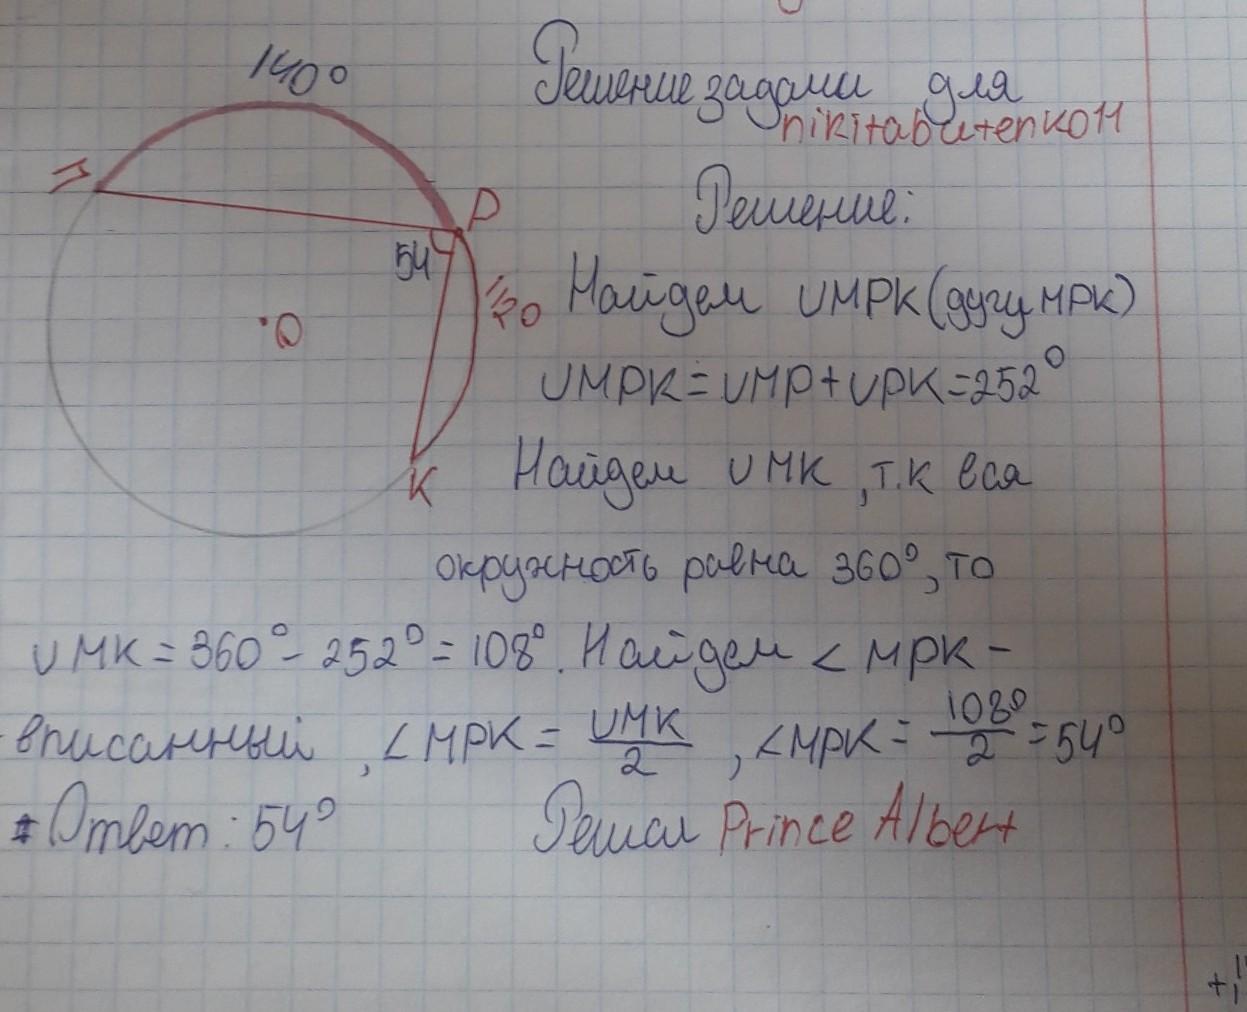 140°
Решение задачи для
nikitabutenko11
P
Решение:
54
Найдем ∪MPK (дугу MPK)
O
∪MPK = ∪MP + ∪PK = 252°
K
Найдем ∪MK, т.к вся
окружность равна 360°, то
∪MK = 360° - 252° = 108°. Найдем ∠MPK -
вписанный, ∠MPK = ∪MK/2, ∠MPK = 108°/2 = 54°
Ответ: 54°
Решал Prince Albert